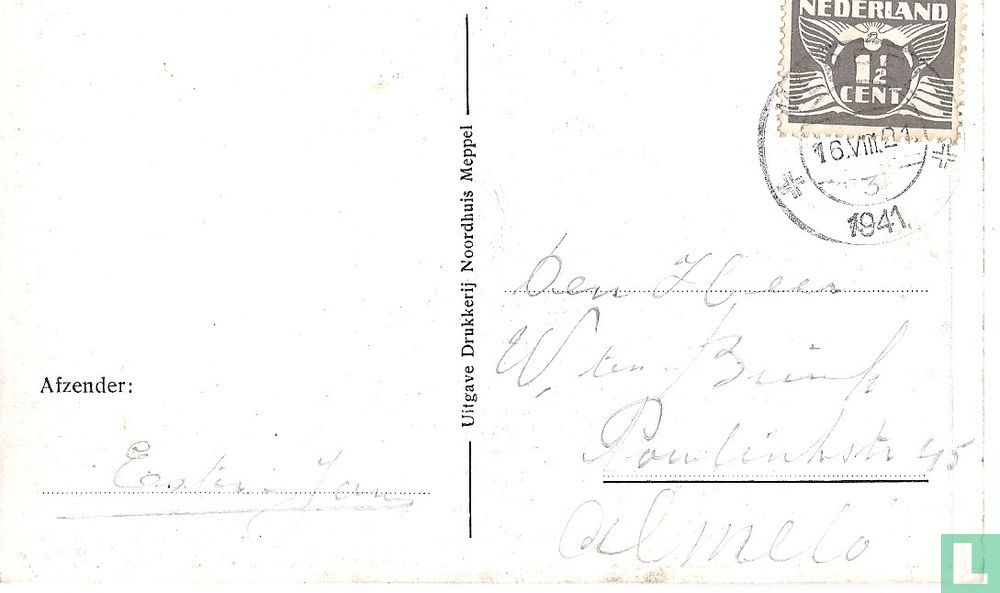 NEDERLAND
1 1/2
CENT
16.VIII.21.
3
1941.
Uitgave Drukkerij Noordhuis Meppel
den Heer
W, ten Brink
45
Almelo
Afzender:
Jan
L